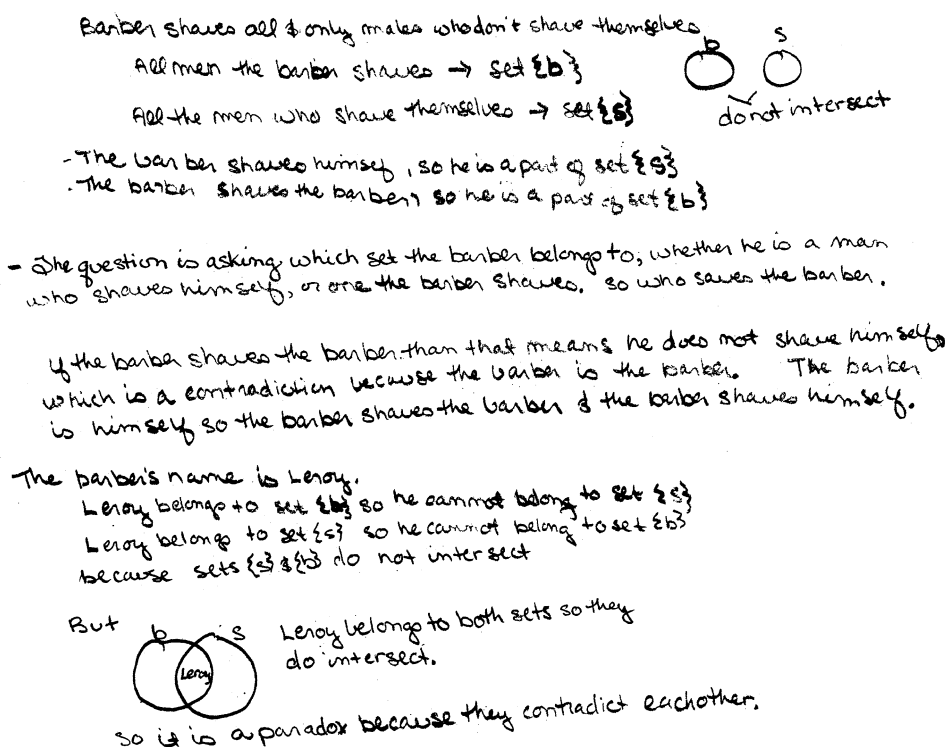 Barber shaves all & only males who don't shave themselves
b s
All men the barber shaves → set {b}
All the men who shave themselves → set {s}
do not intersect
- The barber shaves himself, so he is a part of set {s}
- The barber shaves the barber, so he is a part of set {b}
- The question is asking which set the barber belongs to, whether he is a man
who shaves himself, or one the barber shaves. So who saves the barber.
If the barber shaves the barber than that means he does not shave himself,
which is a contradiction because the barber is the barber. The barber
is himself so the barber shaves the barber & the barber shaves himself.
The barber's name is Leroy.
Leroy belongs to set {b} so he cannot belong to set {s}
Leroy belongs to set {s} so he cannot belong to set {b}
because sets {s} & {b} do not intersect
But b s Leroy belongs to both sets so they
Leroy do intersect.
so it is a paradox because they contradict eachother.